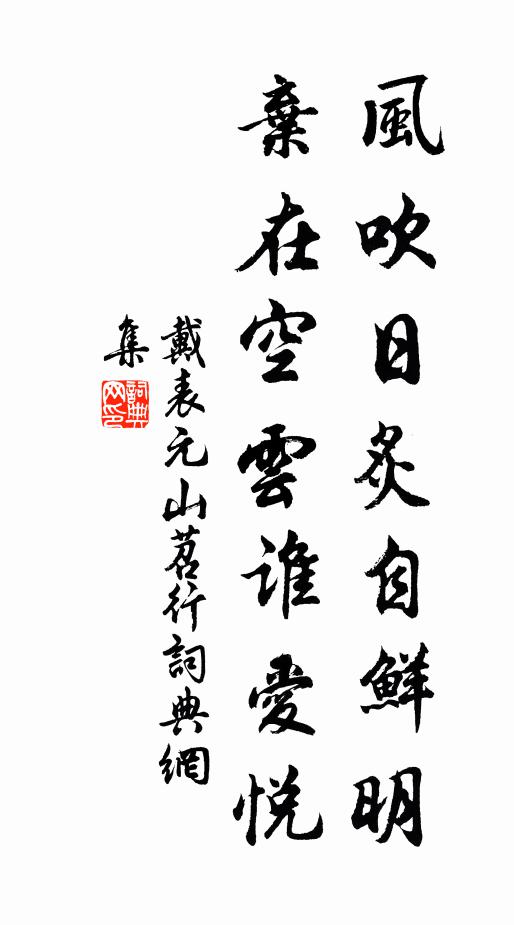 風吹日炙自鮮明
棄在空雲誰愛悅
戴表元山茗行詞典網
集
詞典
网印